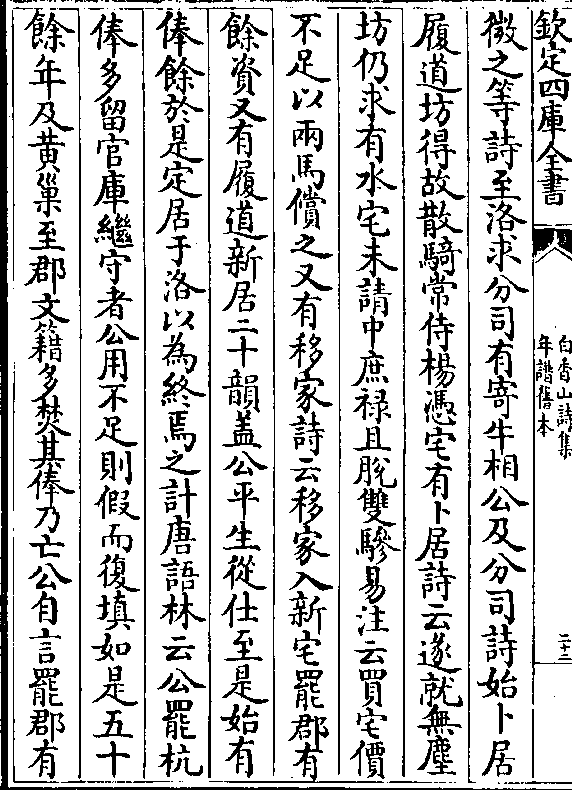 欽定四庫全書
白香山詩集
年譜舊本
二十三
微之等詩至洛求分司有寄牛相公及分司詩始卜居
履道坊得故散騎常侍楊憑宅有卜居詩云遂就無塵
坊仍求有水宅未請中庶禄且脫雙驂易注云買宅價
不足以兩馬償之又有移家詩云移家入新宅罷郡有
餘資又有履道新居二十韻盖公平生從仕至是始有
俸餘於是定居于洛以為終焉之計唐語林云公罷杭
俸多留官庫繼守者公用不足則假而復填如是五十
餘年及黄巢至郡文籍多焚其俸乃亡公自言罷郡有